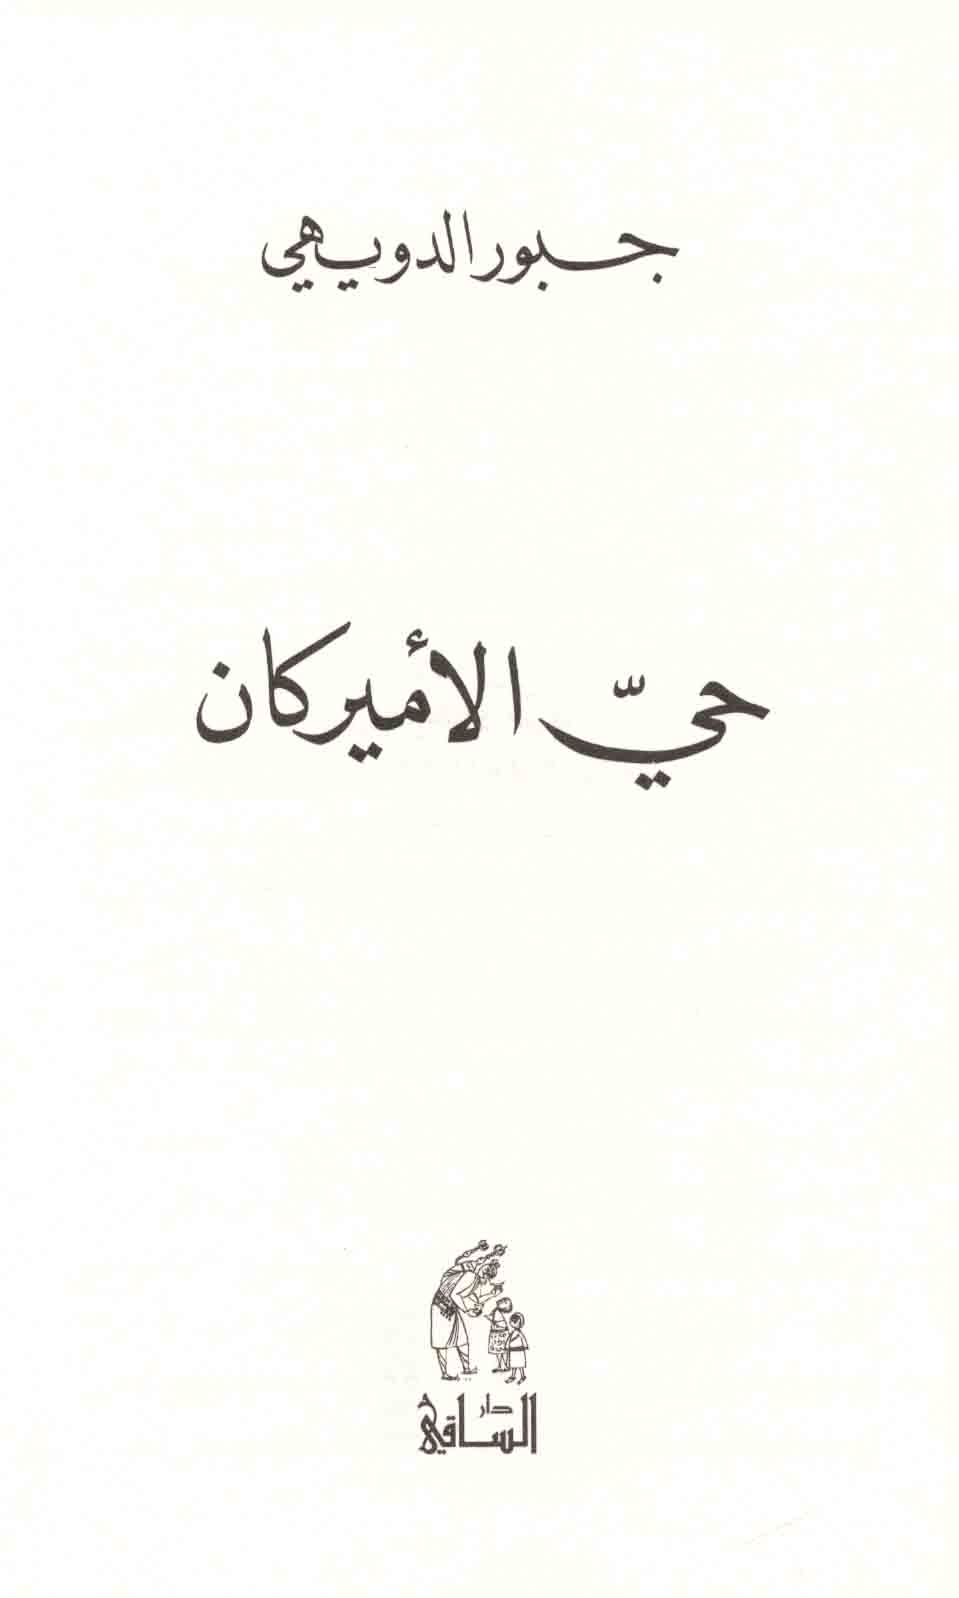 جبور الدويهي
حيّ الأميركان
دار
الساقي